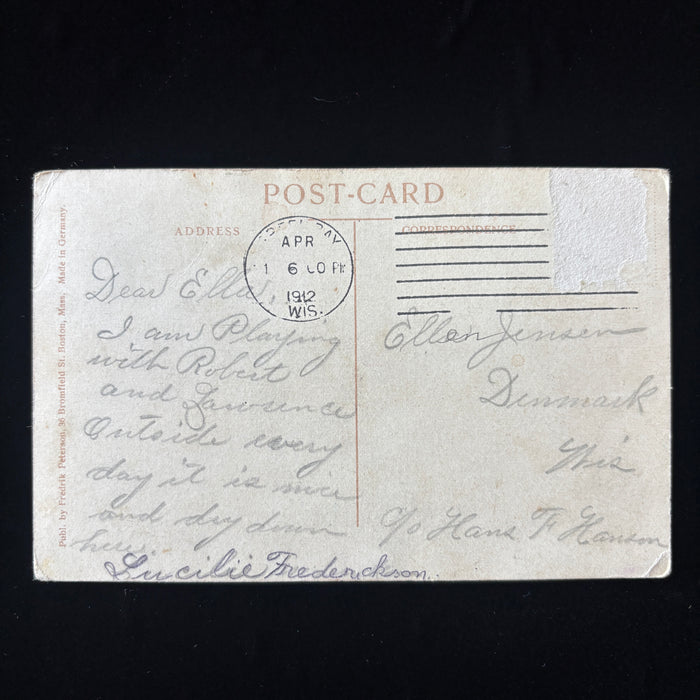 POST-CARD
ADDRESS
CORRESPONDENCE
GREEN BAY
APR
1 6 00 PM
1912
WIS.
Publ. by Fredrik Peterson, 36 Bromfield St. Boston, Mass. Made in Germany.
Dear Ellen,
I am Playing
with Robert
and Lawrence
Outside every
day it is nice
and dry down
here.
Lucilie Frederickson.
Ellen Jensen
Denmark
Wis
c/o Hans F Hanson